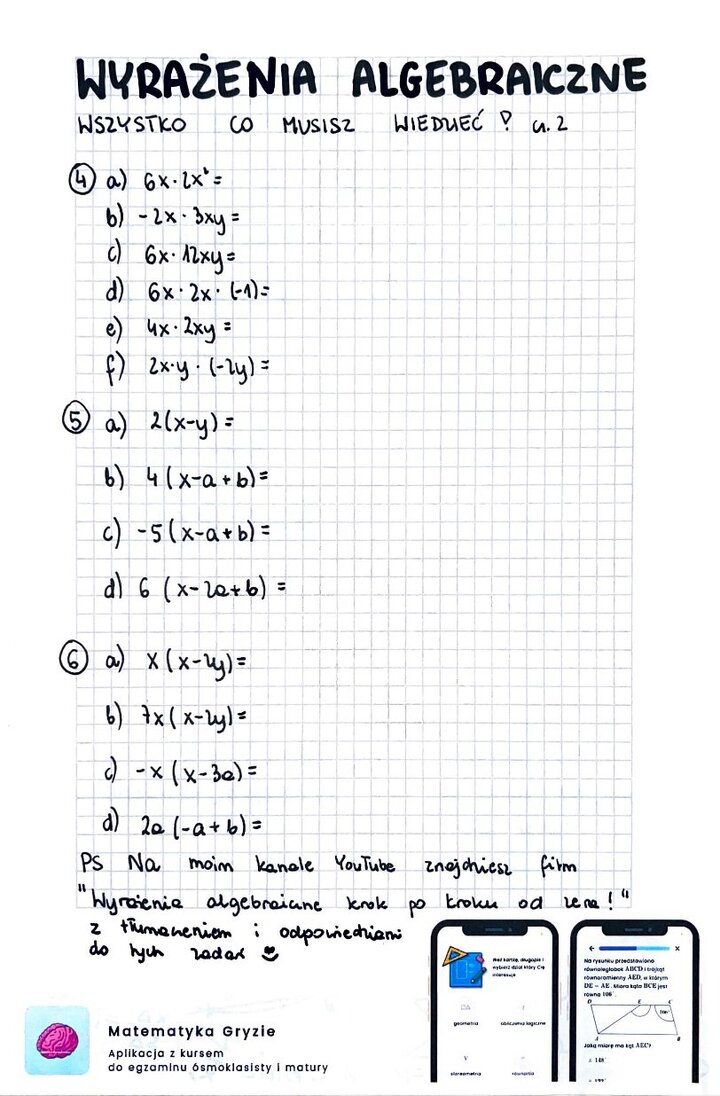 WYRAŻENIA ALGEBRAICZNE
WSZYSTKO CO MUSISZ WIEDZIEĆ? cz. 2
④ a) 6x·2x²=
b) -2x·3xy=
c) 6x·12xy=
d) 6x·2x·(-1)=
e) 4x·2xy=
f) 2x·y·(-2y)=
⑤ a) 2(x-y)=
b) 4(x-a+b)=
c) -5(x-a+b)=
d) 6(x-2a+b)=
⑥ a) x(x-2y)=
b) 7x(x-2y)=
c) -x(x-3a)=
d) 2a(-a+b)=
PS Na moim kanale YouTube znajdziesz film
"Wyrażenia algebraiczne krok po kroku od zera!"
z tłumaczeniem i odpowiedziami
do tych zadań
Weź kartkę, długopis i
wybierz dział który Cię
interesuje
geometria
obliczenia logiczne
stereometria
równania
Na rysunku przedstawiono
równoległobok ABCD i trójkąt
równoramienny AED, w którym
DE = AE. Miara kąta BCE jest
równa 106°.
D E C
106°
A B
Jaką miarę ma kąt AEC?
A 148°
Matematyka Gryzie
Aplikacja z kursem
do egzaminu ósmoklasisty i matury